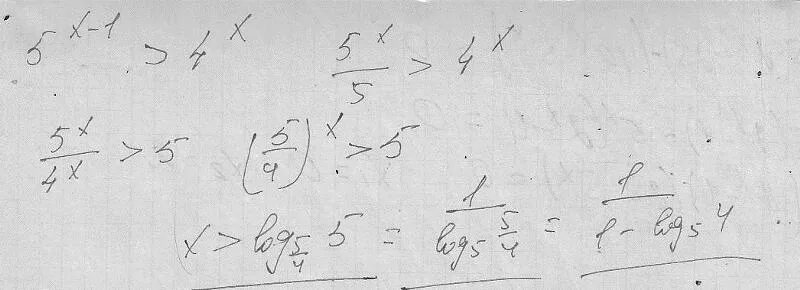 5^{x-1} > 4^x   \frac{5^x}{5} > 4^x
\frac{5^x}{4^x} > 5   \left(\frac{5}{4}\right)^x > 5
x > log_{\frac{5}{4}} 5 = \frac{1}{log_5 \frac{5}{4}} = \frac{1}{1 - log_5 4}